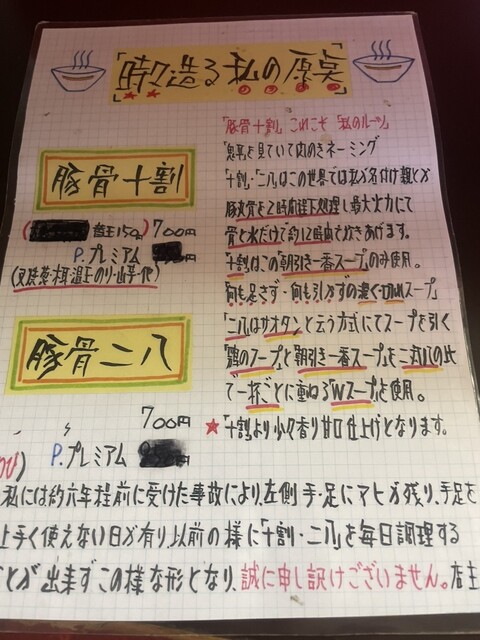 「時々造る私の原点」
「豚骨十割」これこそ「私のルーツ」
「蕎麦」を見ていて閃めきネーミング
「十割・二八」はこの世界では私が名付け親とか
豚丸骨を2時間程下処理し最大火力にて
骨と水だけで約12時間で炊きあげます。
「十割」はこの「朝引き一番スープ」のみ使用。
「何も足さず・何も引かずの濃く切れスープ」
「二八」はサオタンと云う方式にてスープを引く
「鶏のスープ」と「朝引き一番スープ」を二対八の比
で一杯ごとに重ねる「Wスープ」を使用。
★「十割」より少々香り甘口仕上げとなります。
豚骨十割
150g 700円
P.プレミアム
豚骨二八
700円
P.プレミアム
私には約六年程前に受けた事故により、左側 手・足にマヒが残り、手足を
上手く使えない日が有り、以前の様に「十割・二八」を毎日調理する
ことが出来ずこの様な形となり、誠に申し訳けございません。店主